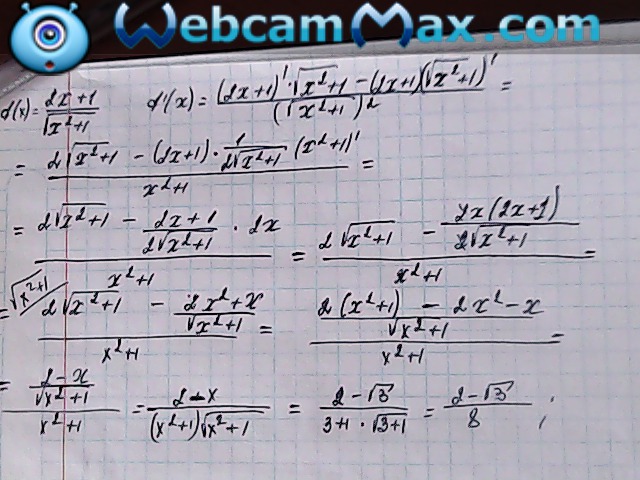 WebcamMax.com
f(x) = (2x+1)/√(x²+1)   f'(x) = ((2x+1)'·√(x²+1) − (2x+1)(√(x²+1))')/(√(x²+1))² =
= (2√(x²+1) − (2x+1)·1/(2√(x²+1))·(x²+1)')/(x²+1) =
= (2√(x²+1) − (2x+1)/(2√(x²+1))·2x)/(x²+1) = (2√(x²+1) − 2x(2x+1)/(2√(x²+1)))/(x²+1) =
= (√(x²+1)/ 2√(x²+1) − (2x²+x)/√(x²+1))/(x²+1) = ((2(x²+1) − 2x²−x)/√(x²+1))/(x²+1) =
= ((2−x)/√(x²+1))/(x²+1) = (2−x)/((x²+1)√(x²+1)) = (2−√3)/(3+1·√(3+1)) = (2−√3)/8 ;